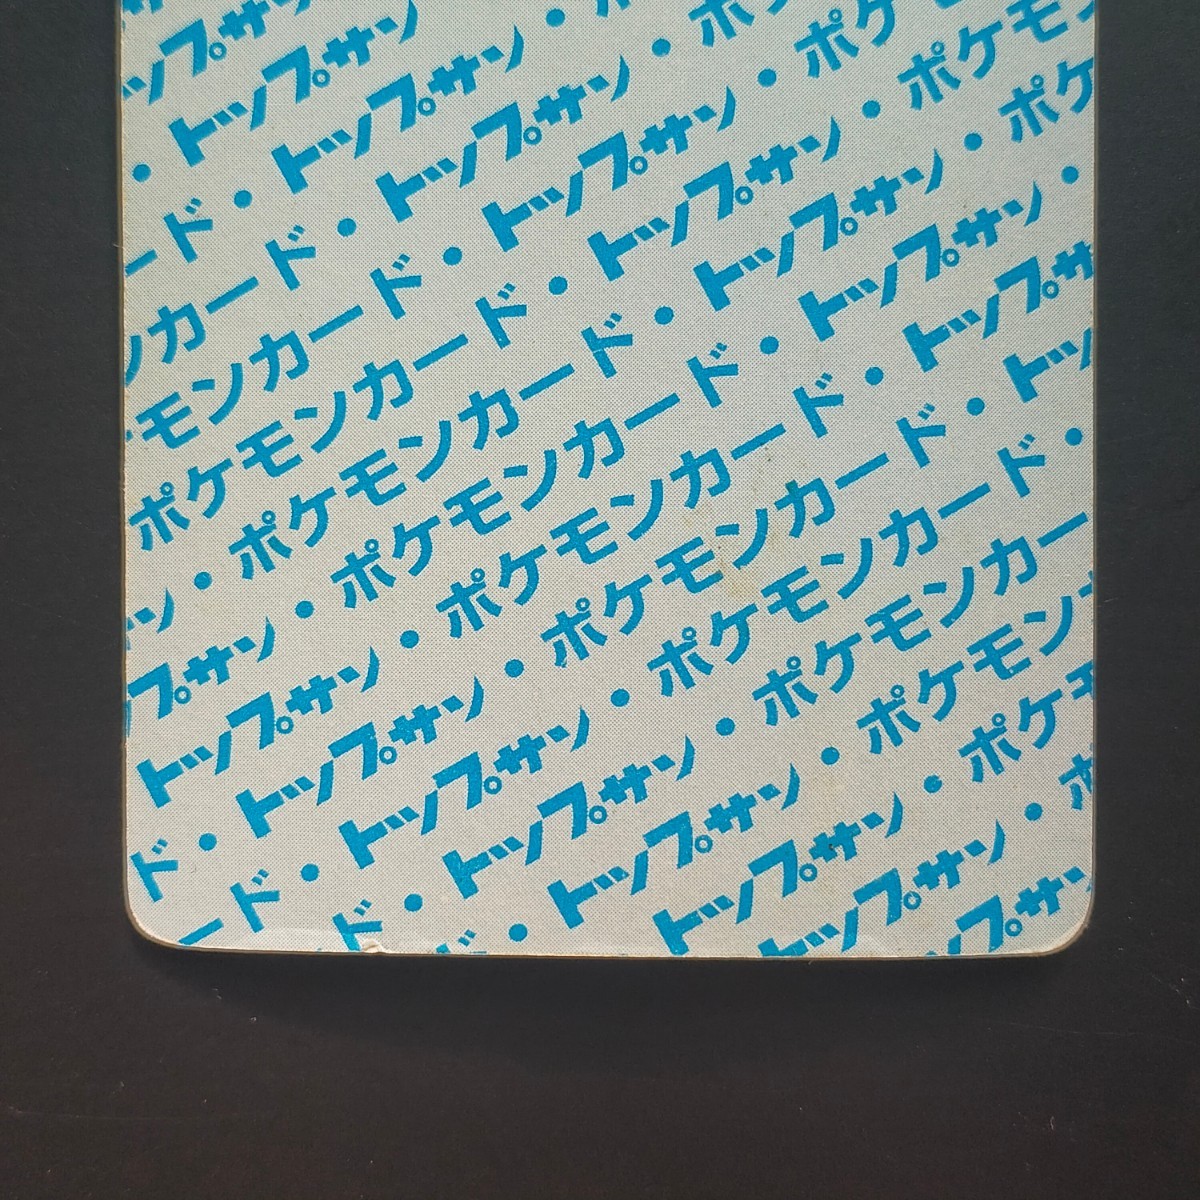 トップサン
トップサン・
・トップサン・ポケモ
ード・トップサン・ポケモ
ンカード・トップサン・ポケ
モンカード・トップサン・
ポケモンカード・トップサン
・ポケモンカード・トップサ
トップサン・ポケモンカード・トッ
トップサン・ポケモンカード・
トップサン・ポケモンカード・
ド・トップサン・ポケモンカード
ード・トップサン・ポケモンカー
ド・トップサン・ポケモン
・トップサン・ポケモ
トップサン・ポ
トップサン
プサン